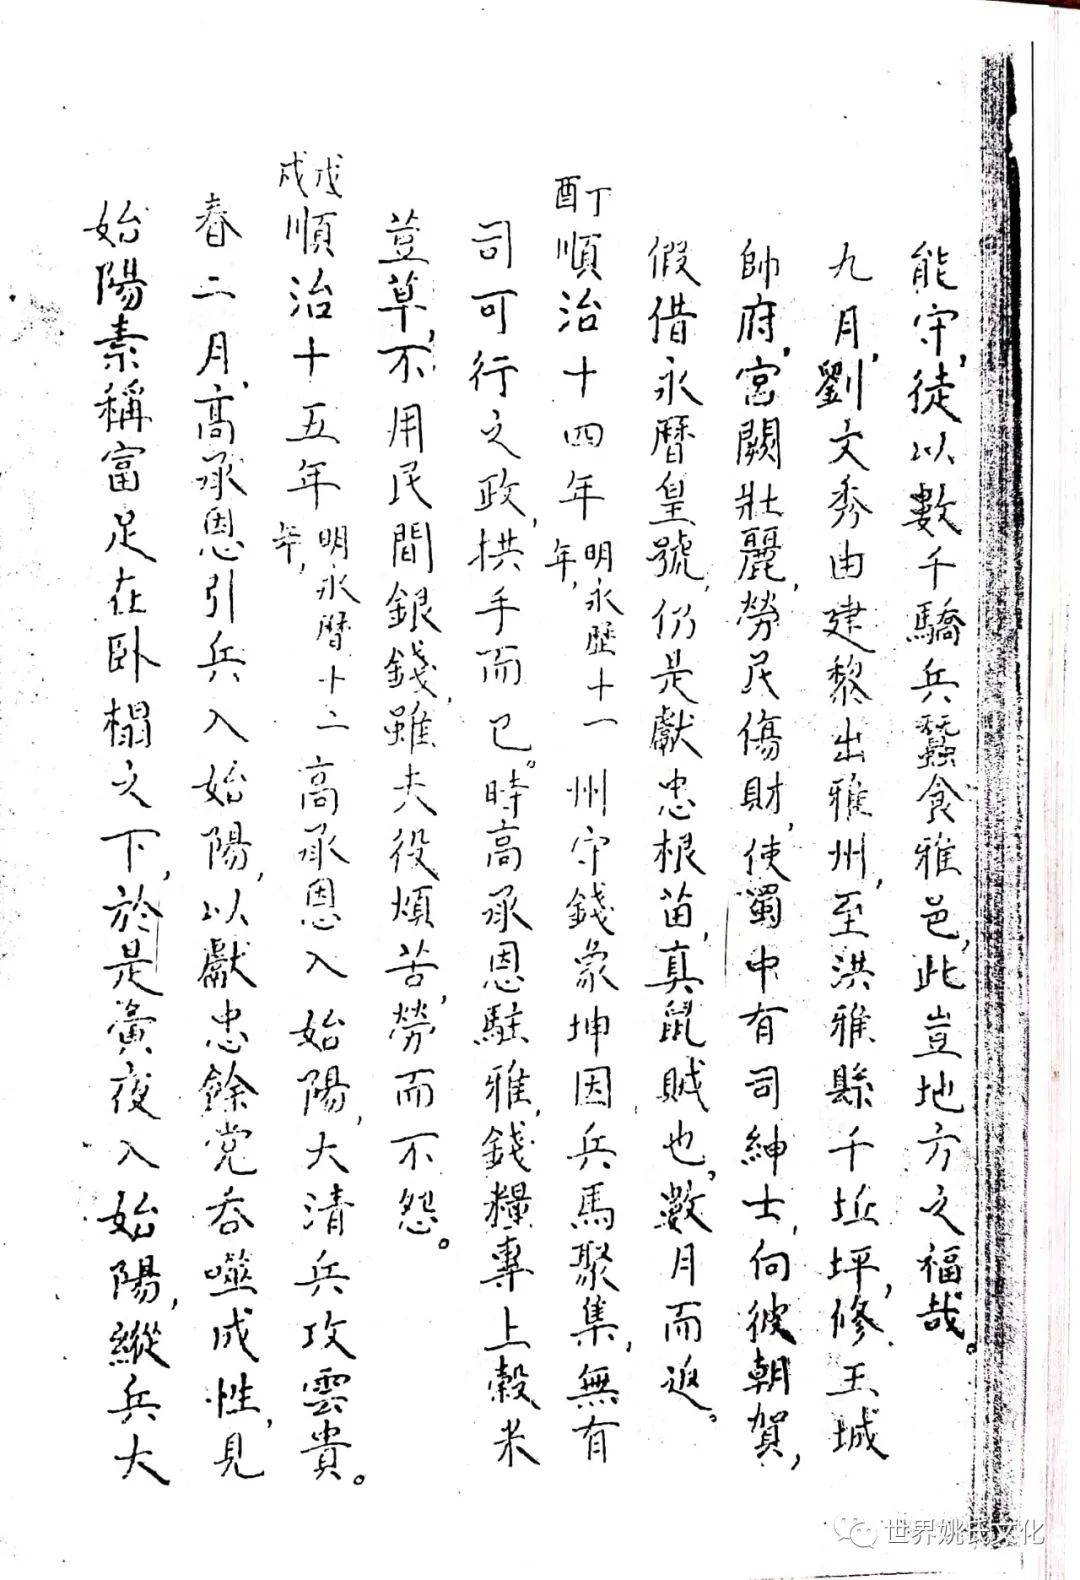 能守，徒以數千驕兵蠶食雅邑，此豈地方之福哉。
九月，劉文秀由建黎出雅州，至洪雅縣千坵坪，修王城
帥府，宮闕壯麗，勞民傷財，使蜀中有司紳士，向彼朝賀，
假借永曆皇號，仍是獻忠根苗，真鼠賊也，數月而返。
丁酉順治十四年明永歷十一年，州守錢象坤因兵馬聚集，無有
司可行之政，拱手而已。時高承恩駐雅，錢糧專上穀米
荳草，不用民間銀錢，雖夫役煩苦，勞而不怨。
戊戌順治十五年明永曆十二年，高承恩入始陽，大清兵攻雲貴。
春二月，高承恩引兵入始陽，以獻忠餘党吞噬成性，見
始陽素稱富足在卧榻之下，於是黃夜入始陽，縱兵大
世界姚氏文化